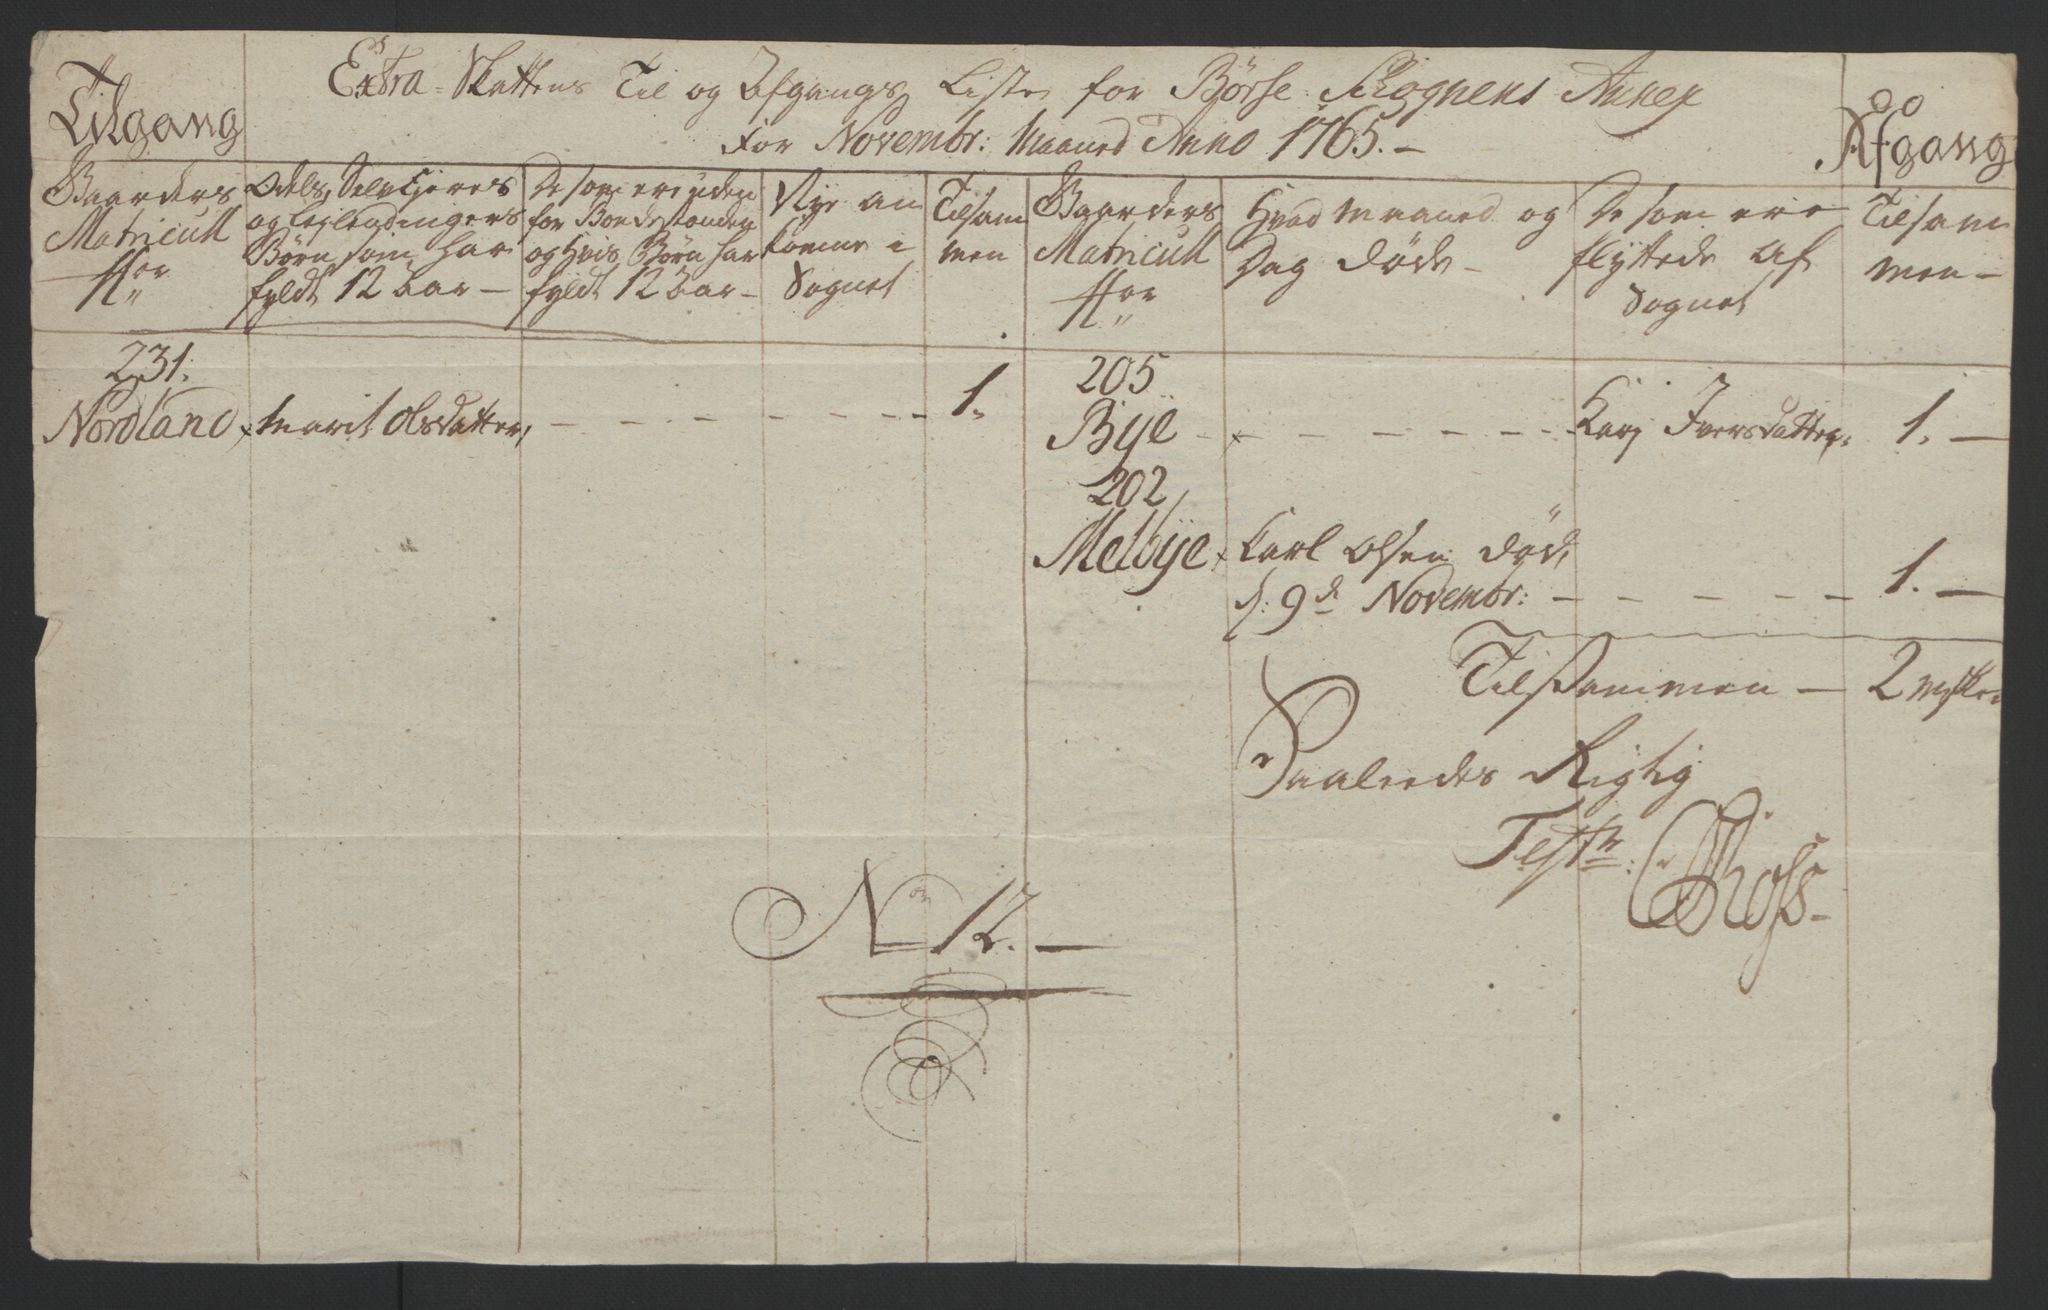 Tilgang
Extra-Skattens Til og Afgangs Liste for Børse Sognens Annex
For Novembr: Maaned Anno 1765.-
Afgang
Gaardens
Matricull
No
Odels, Selvejeres
og Leylendingers
Børn som har
fyldt 12 Aar-
De som ere uden
for Bondestanden
og Hvis Børn har
fyldt 12 Aar-
Nye an
komne i
Sognet
Tilsam
men
Gaardens
Matricull
No
Hvad Maaned og
Dag døde-
De som ere
flyttede af
Sognet
Tilsam
men-
231.
Nordland
Marit Olsdatter,
1.
205
Bye
Kari Iversdatter.
1.-
202
Melbye
Carl Olsen Død,
d: 9de Novembr:
1.-
Tilsammen - 2
Saaledes Rigtig
Test
No 12.-